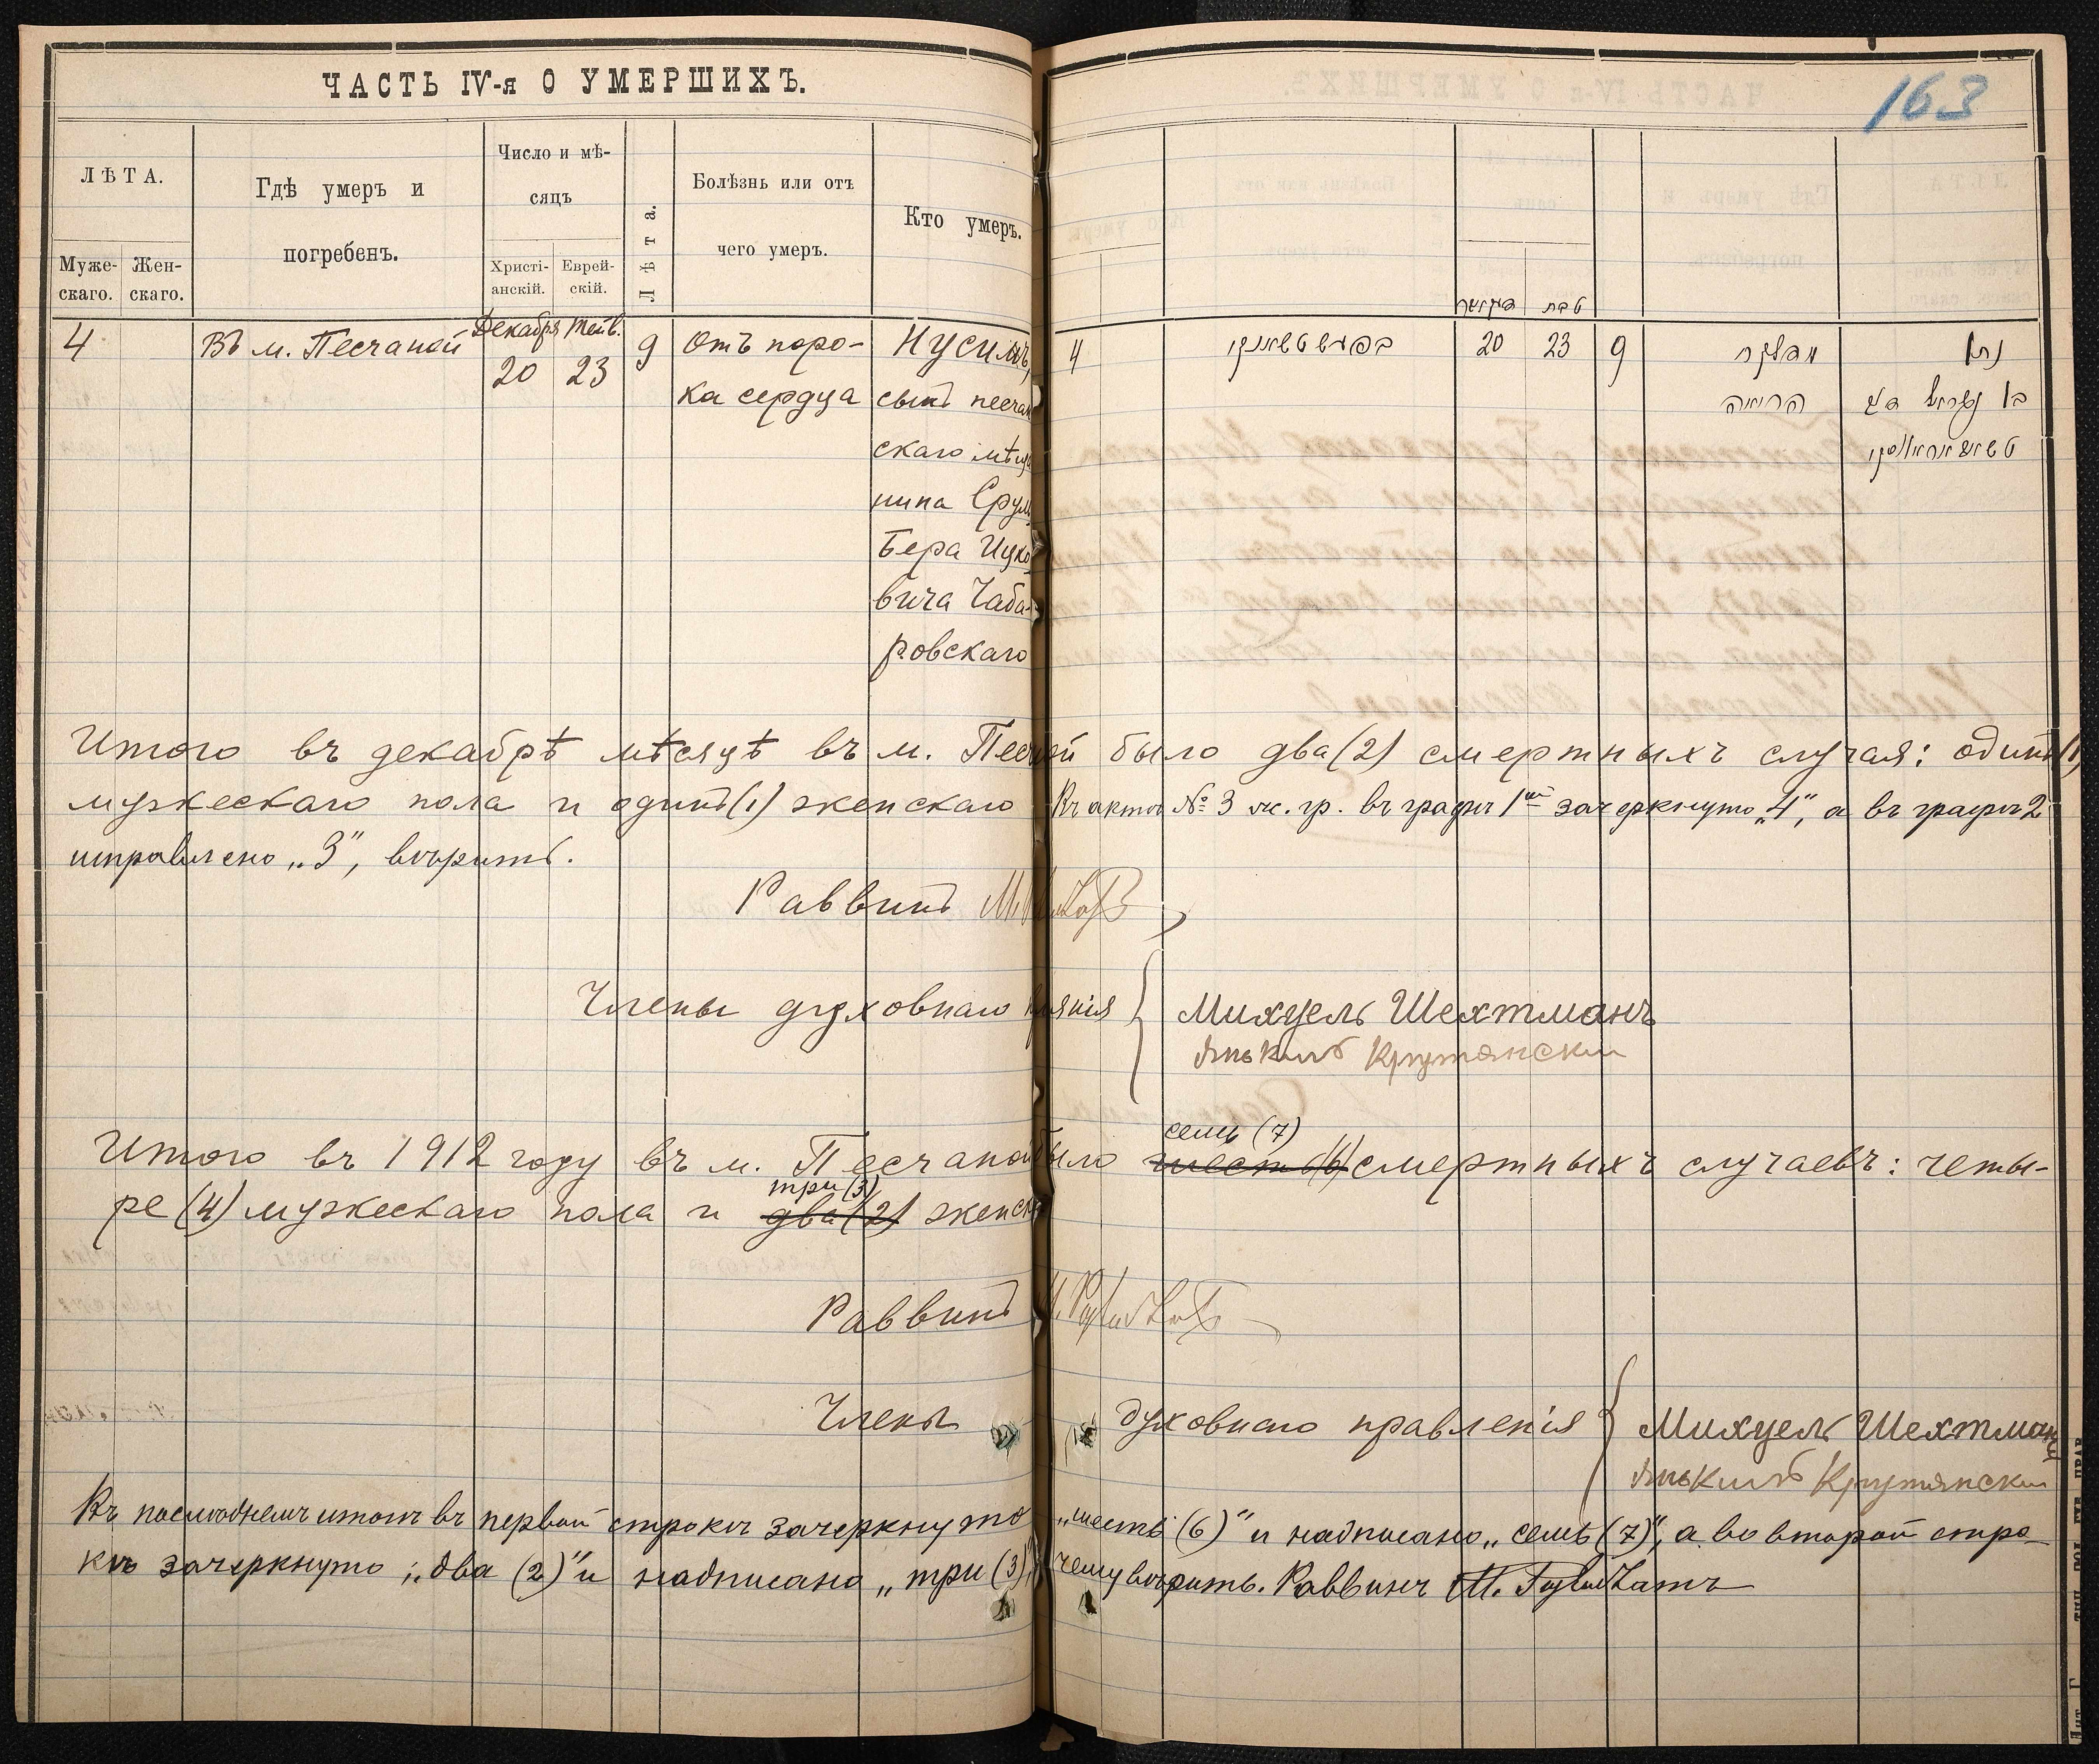 ЧАСТЬ IV-я О УМЕРШИХЪ.
163
ЛѢТА.
Муже-
скаго.
Жен-
скаго.
Гдѣ умеръ и
погребенъ.
Число и мѣ-
сяцъ
Христі-
анскій.
Еврей-
скій.
Лѣта.
Болѣзнь или отъ
чего умеръ.
Кто умеръ.
4
Въ м. Песчаной
Декабря
20
Тейв.
23
9
Отъ поро-
ка сердца
Нусимъ,
сынъ песчан
скаго мѣща
нина Срул
Бера Ицко
вича Чаба-
ровскаго
טבת
4
20
23
9
נתן
Итого въ декабрѣ мѣсяцѣ въ м. Песчаной было два (2) смертныхъ случая: одинъ (1)
мужескаго пола и одинъ (1) женскаго Въ актѣ № 3 м. гр. въ графѣ 1ой зачеркнуто „4“, а въ графѣ 2
исправлено „3“, вѣрить.
Раввинъ
Члены духовнаго правленія
Михуель Шехтманъ
Янькиль Крутянски
Итого въ 1912 году въ м. Песчаной было семь (7) шесть (6) смертныхъ случаевъ: четы-
ре (4) мужескаго пола и три (3) два (2) женск
Раввинъ
Члены духовнаго правленія
Михуель Шехтманъ
Янькиль Крутянски
Въ послѣднемъ итогѣ въ первой строкѣ зачеркнуто „шесть (6)“ и надписано „семь (7)“, а во второй стро-
кѣ зачеркнуто „два (2)“ и надписано „три (3)“, чему вѣрить. Раввинъ М.